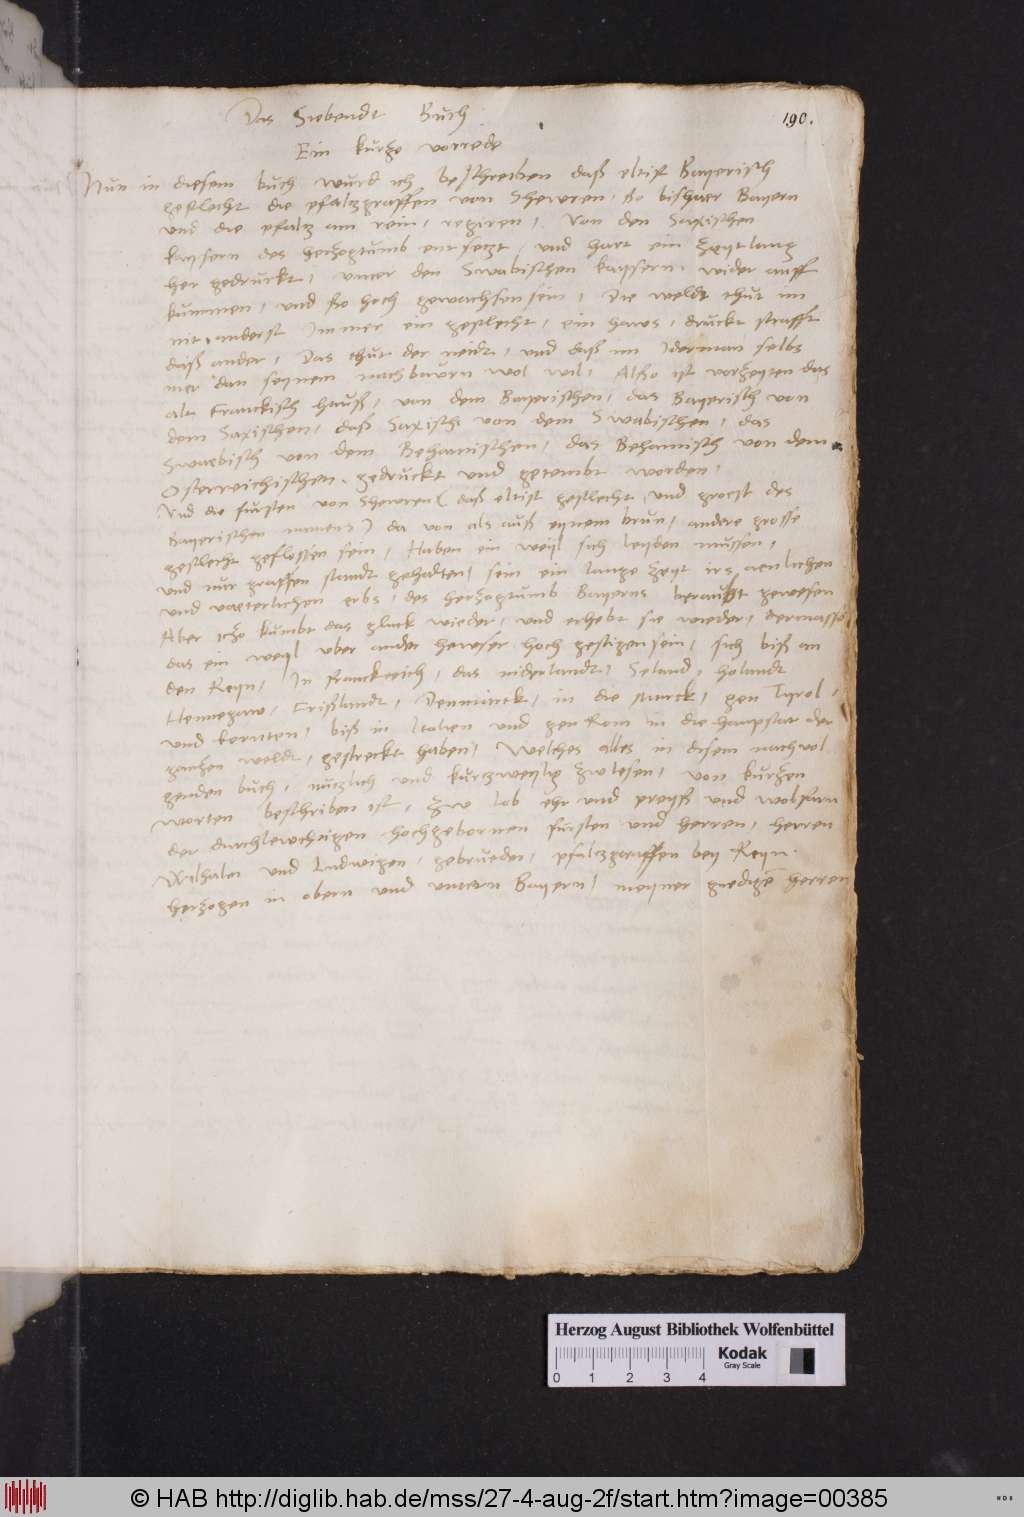 Das Siebendt Buch
190.
Ein kurtze vorrede
Nun in diesem buch wurd ich beschreiben daß eltist Bayerisch
geslecht die pfaltzgraffen von Shewren, so bisher Bayern
und die pfaltz am rein, regiren, von den Saxischen
kaysern des hertzogtumb entsetzt, und hart ein zeytlang
her gedruckt, unter den Swabischen kaysern wider auff
kummen, und so hoch gewachsen sein, Die weldt thut im
nit anderst Immer ein geslecht, ein haws, druckt strafft
daß ander, Das thut der neidt, und daß im Iderman selbs
mer dan seynem nachbaurn wol wil, Also ist vorzeyten das
alt Franckisch hauß, von dem Bayerischen, das Bayerisch von
dem Saxischen, daß Saxisch von dem Swabischen, das
Swaebisch von dem Behamischen, das Behamisch von dem
Osterreichischen, gedruckt und getembt worden,
Und die fursten von Shewren (daß eltist geslecht und groest des
Bayerischen namens) da von als auß eynem brun, andere grosse
geslecht geflossen sein, Haben ein weyl sich leyden mussen,
und nur graffen standt gehalten, sein ein lange zeyt irs aenlichen
und vaeterlichen erbs, des hertzogtumb Bayerns beraubt gewesen
Aber itzo kumbt das gluck wieder, und erhebt sie wieder, dermasse
das ein weyl uber ander hewser hoch gestigen sein, sich biß an
den Reyn, In franckreich, das niderlandt, Seland, holandt
Hennegaw, Frißlandt, Denmarck, in die Marck, gen Tyrol,
und kernten, biß in Italien und gen Rom in die haupstat der
gantzen weldt, gestreckt haben, Welches alles in disem nachvol
genden buch, nutzlich und kurtzweylig zw lesen, von kurtzen
worten beschriben ist, zw lob ehr und preyß und wolfarn
der durchlewchtigen hochgebornen fursten und herren, herren
Wilhalm und Ludwigen, gebrueder, pfaltzgraffen bey Reyn
hertzogen in obern und untern Bayern, meyner gnedigē herren
Herzog August Bibliothek Wolfenbüttel
0 1 2 3 4
Kodak
Gray Scale
© HAB http://diglib.hab.de/mss/27-4-aug-2f/start.htm?image=00385